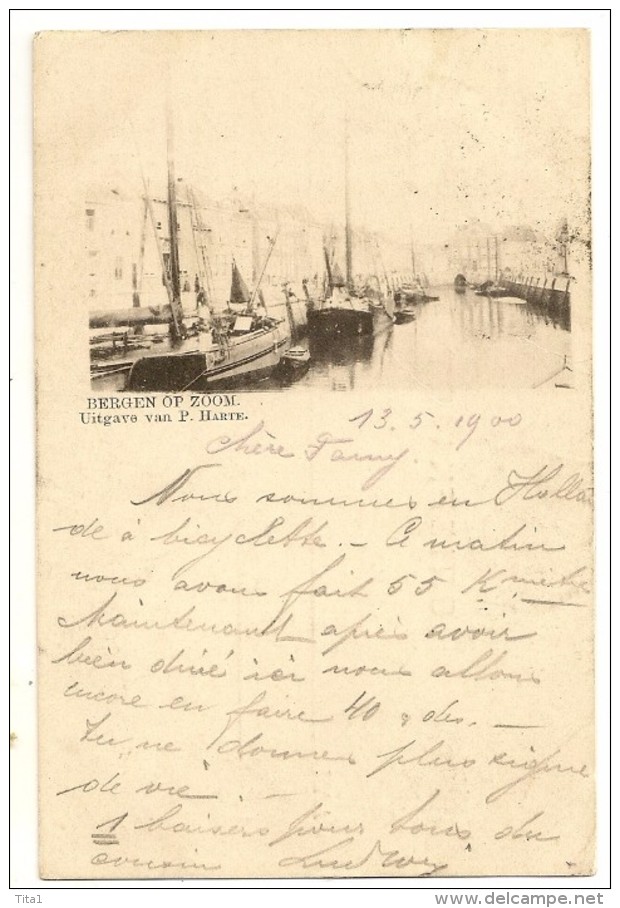 BERGEN OP ZOOM.
Uitgave van P. HARTE.
13.5.1900
Chère Fanny.
Nous sommes en Hollan
de à bicyclette. - Ce matin
nous avons fait 55 K. mètre
Maintenant après avoir
bien diné ici nous allons
encore en faire 40 
Tu ne donnes plus signe
de vie.
1 baisers pour tous du
cousin
Tita1
delcampe.net